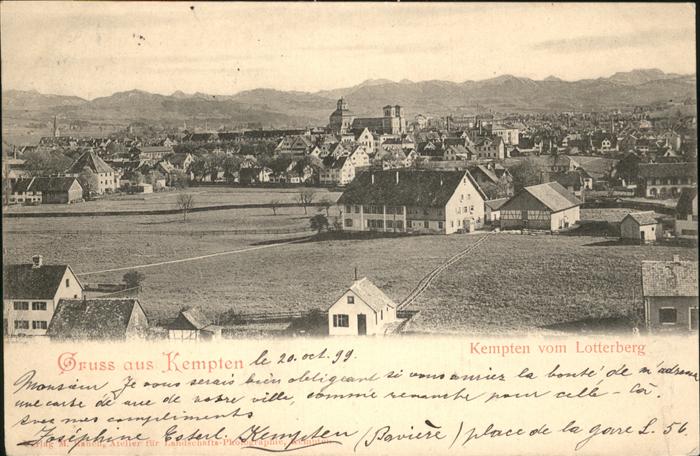 Gruss aus Kempten le 20. oct. 99.
Kempten vom Lotterberg
Monsieur Je vous serais bien obligeant si vous auriez la bonté de m'adresser
une carte de vue de votre ville, comme revanche pour celle-là.
Avec mes compliments
Joséphine Esterl. Kempten (Bavière) place de la gare L. 56.
Verlag M. Atelier für Landschafts-Photographie, Kempten